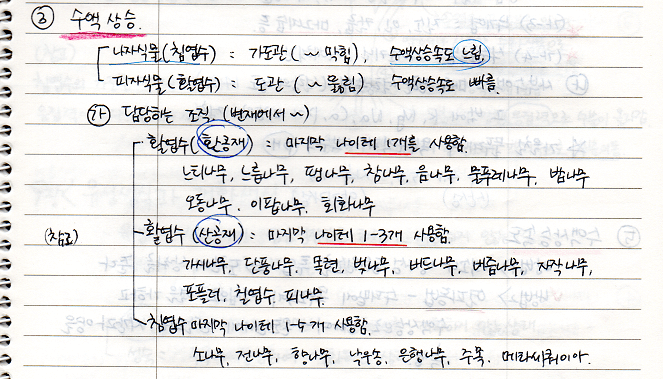 ③ 수액 상승.
나자식물(침엽수) : 가도관(~막힘), 수액상승속도 느림.
피자식물(활엽수) : 도관(~뚫림) 수액상승속도 빠름.
㉮ 담당하는 조직. (변재에서~)
활엽수(환공재) : 마지막 나이테 1개를 사용함.
느티나무, 느릅나무, 팽나무, 참나무, 음나무, 물푸레나무, 밤나무
오동나무, 이팝나무, 회화나무
(참고) 활엽수(산공재) : 마지막 나이테 1-3개 사용함.
가시나무, 단풍나무, 목련, 벚나무, 버드나무, 버즘나무, 자작나무,
포플러, 칠엽수, 피나무.
침엽수 마지막 나이테 1-5개 사용함.
소나무, 전나무, 향나무, 낙우송, 은행나무, 주목, 메타세쿼이아.